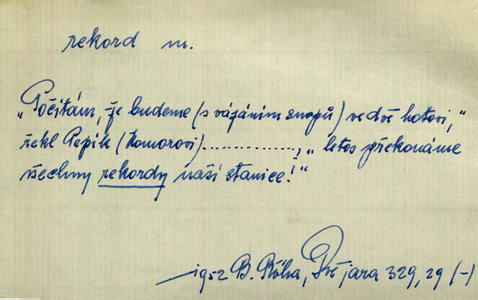 rekord m.
"Počítám, že budeme (s vázáním snopů) ve dvě hotovi,"
řekl Pepík (Komorovi) ..............., "letos překonáme
všechny rekordy naší stanice!"
1952 B. Říha, Dvě jara 329, 29 (-)